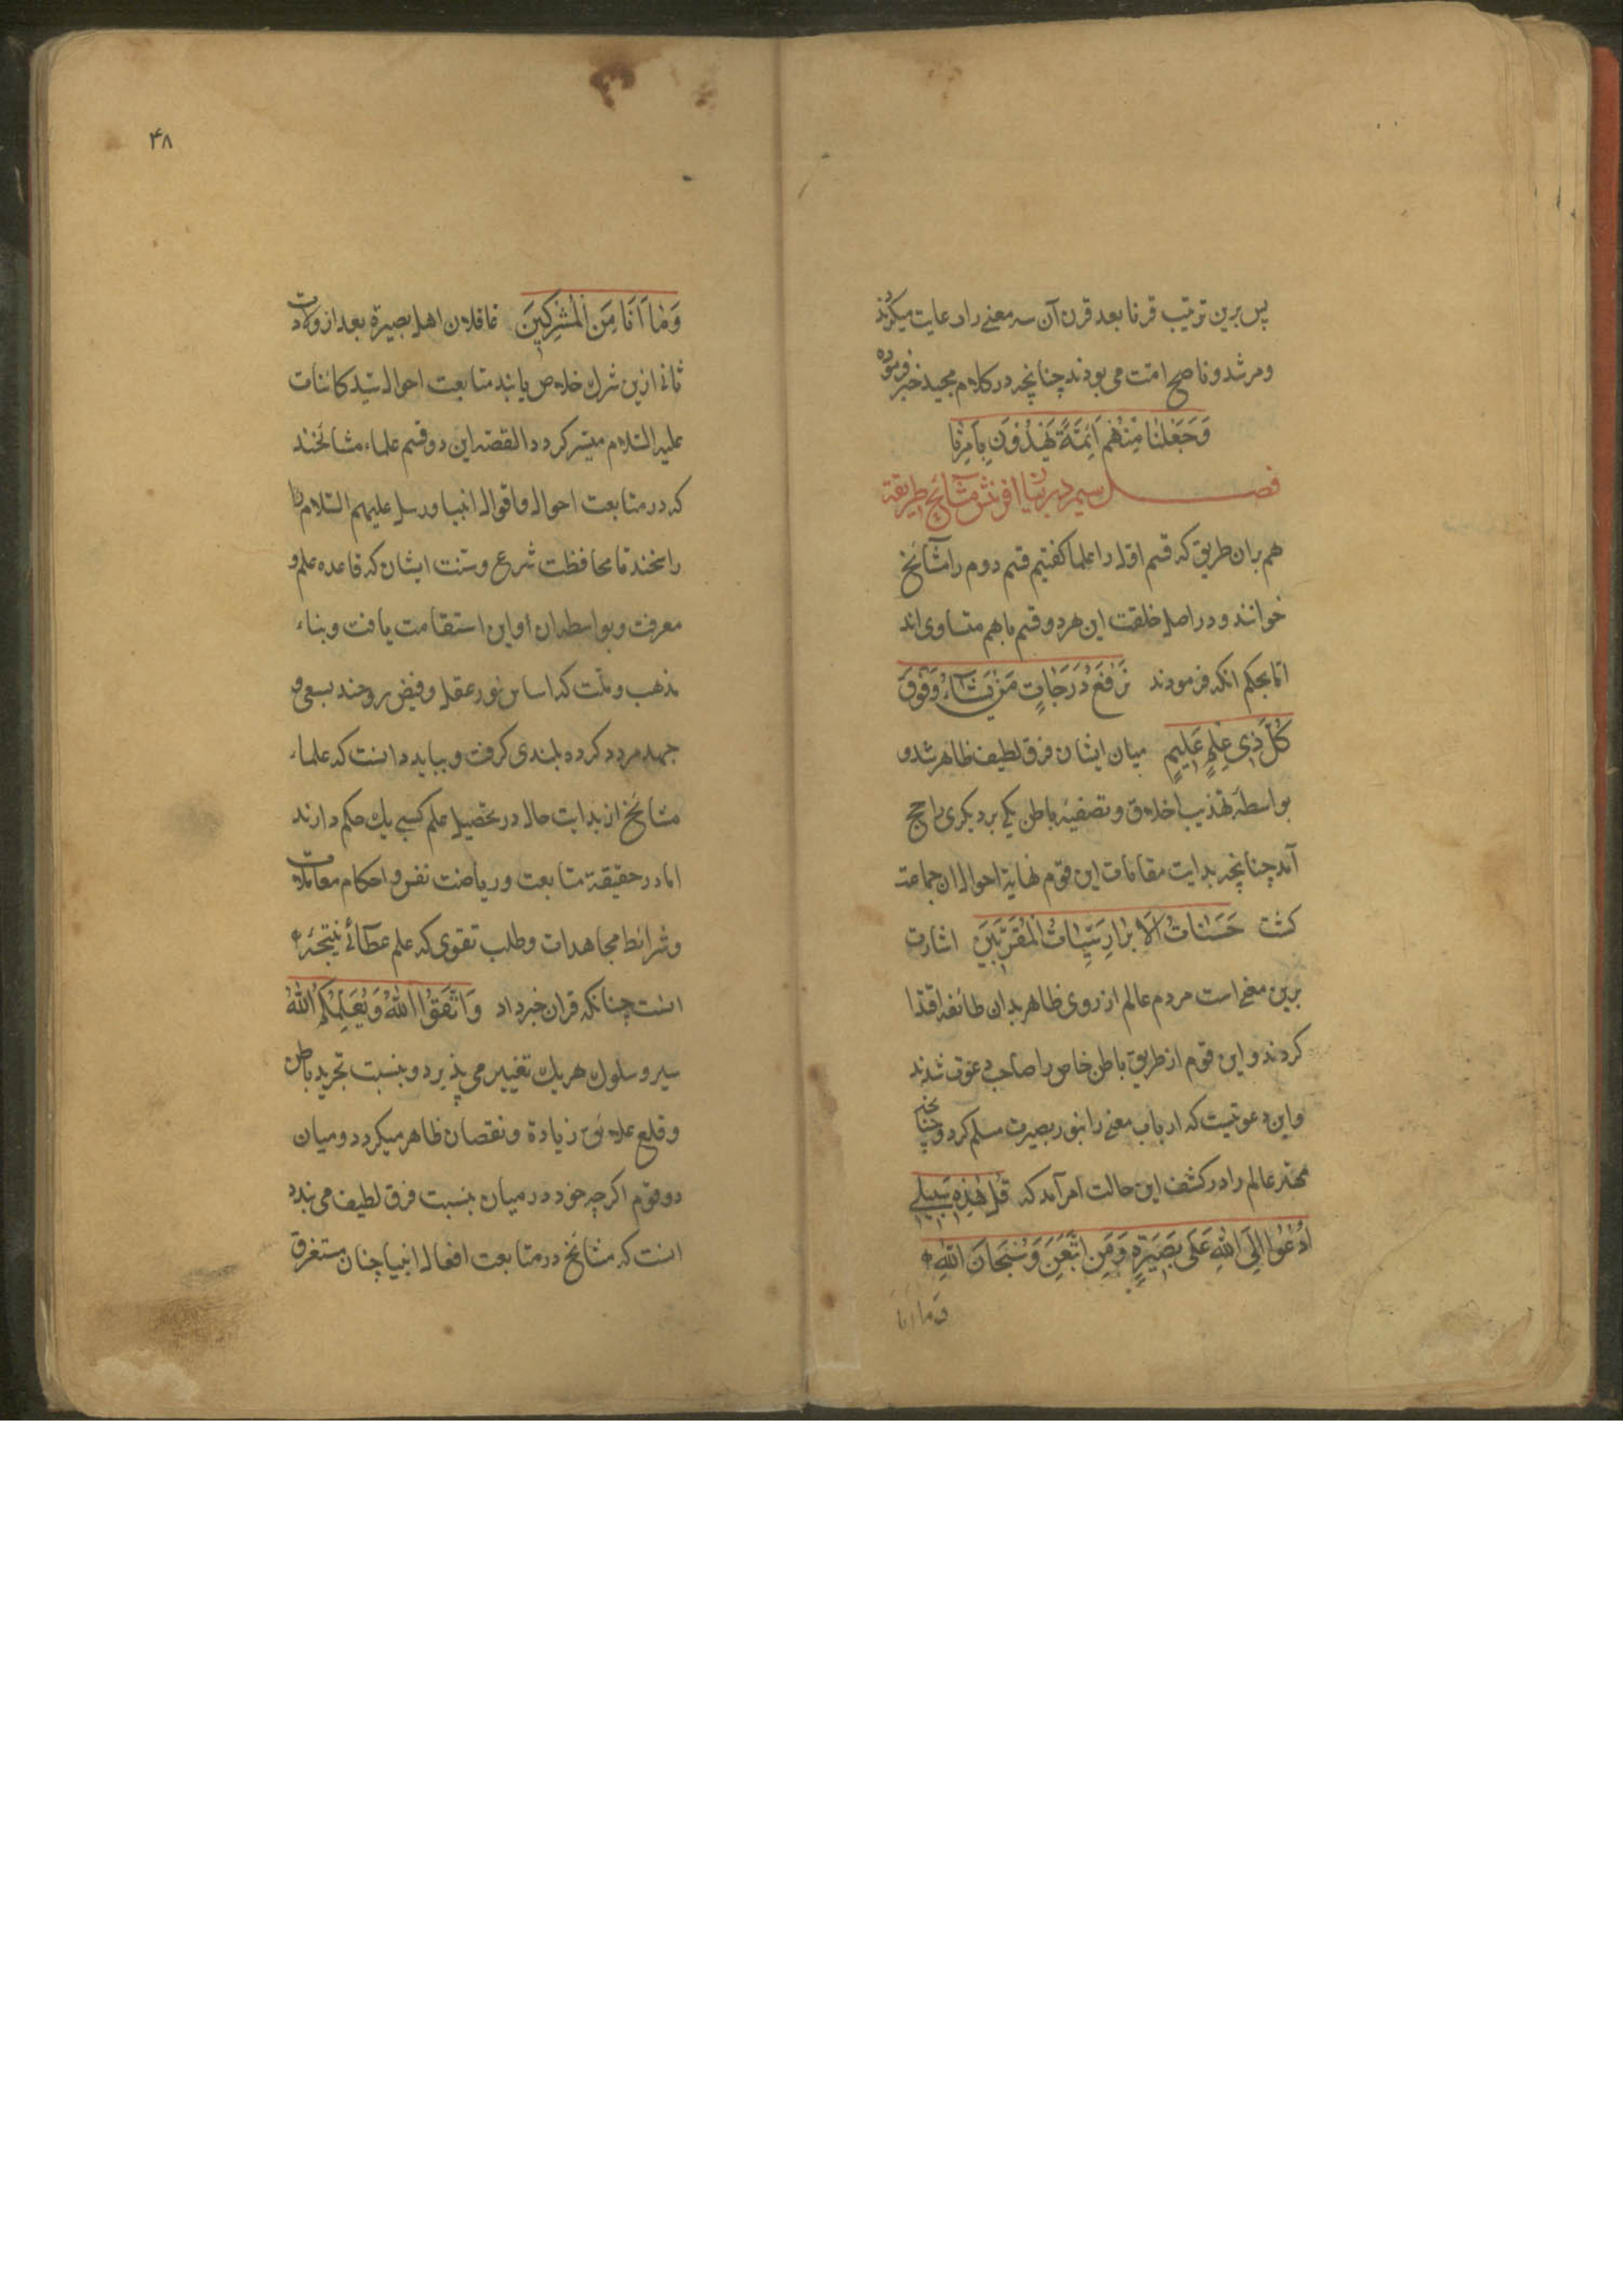 پس برین ترتیب قرنا بعد قرن آن سه معنے را رعایت میکردند
ومرشد وناصح امت می بودند چنانچه در کلام مجید خبر فرموده
وَجَعَلْنَا مِنْهُمْ اَئِمَّةً یَهْدُوْنَ بِاَمْرِنَا
فصل سیم در بیان افرینش مشآئخ طریقة
هم بران طریق که قسم اول را علما کفتیم قسم دوم را مشآئخ
خوانند و در اصل خلقت این هر دو قسم باهم متساوی اند
اما بحکم انکه فرمودند نَرْفَعُ دَرَجَاتٍ مَنْ نَشَآءُ وَفَوْقَ
کُلِّ ذِی عِلْمٍ عَلِیمٍ میان ایشان فرق لطیف ظاهر شد و
بواسطهٔ تهذیب اخلاق وتصفیه باطن یکی بر دیکری راجح
آمد چنانچه بدایت مقامات این قوم نهایة احوال ان جماعت
کشت حَسَنَاتُ الاَبْرَارِ سَیِّئَاتُ الْمُقَرَّبِیْنَ اشارت
برین معنی است مردم عالم از روی ظاهر بدان طائفه اقتدا
کردند و این قوم از طریق باطن خاص را صاحب دعوت شدند
واین دعوتیست که ارباب معنے را بنور بصیرت مسلم کردد چنانچه
مهتر عالم را در کشف این حالت امر آمد که قُلْ هٰذِهِ سَبِیلِی
اَدْعُوا اِلَی اللّٰهِ عَلٰی بَصِیْرَةٍ وَمَنِ اتَّبَعَنِ وَسُبْحَانَ اللّٰهِ
وَما اَنَا
۴۸
وَمٰا اَنَا مِنَ الْمُشْرِکِیْنَ عاقلان اهل بصیرة بعد از ولادت
ثانی ازین شرک خلاص یابند متابعت احوال سید کائنات
علیه السّلام میسّر کردد القصه این دو قسم علماء مشائخند
که در متابعت احوال واقوال انبیا ورسل علیهم السّلام
راسخند تا محافظت شرع وسنت ایشان که قاعده علم و
معرفت وبواسطهٔ ان او این استقامت یافت وبناء
مذهب وملت که اساس نور عقل وفیض روحند بسعی و
جهد مردد کرده بلندی کرفت وبباید دانست که علماء
مشائخ از بدایت حال در تحصیل علم کسبی یک حکم دارند
اما در حقیقة متابعت وریاضت نفس واحکام معاملات
وشرائط مجاهدات وطلب تقوی که علم عطآئی نتیجهٔ
انست چنانکه قران خبر داد وَاتَّقُوْا اللّٰهَ وَیُعَلِّمُکُمُ اللّٰهُ
سیر وسلوک هر یک تغییر می پذیرد وبنسبت تجرید باطن
وقلع علائق زیادة ونقصان ظاهر میکردد ومیان
دو قوم اکرچه خود در میان بنسبت فرق لطیف می بندد
انست که مشائخ در متابعت افعال انبیا چنان مستغرق